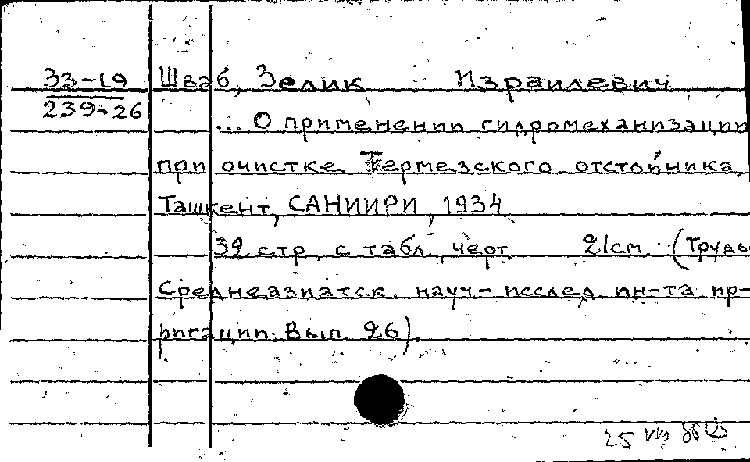 33-19
239-26
Шваб, Зелик Израилевич
... О применении гидромеханизации
при очистке Термезского отстойника.
Ташкент, САНИИРИ, 1934
32 стр. с табл., черт. 21см. (Труды
Среднеазиатск. науч.-исслед. ин-та ир-
ригации. Вып. 26).
25